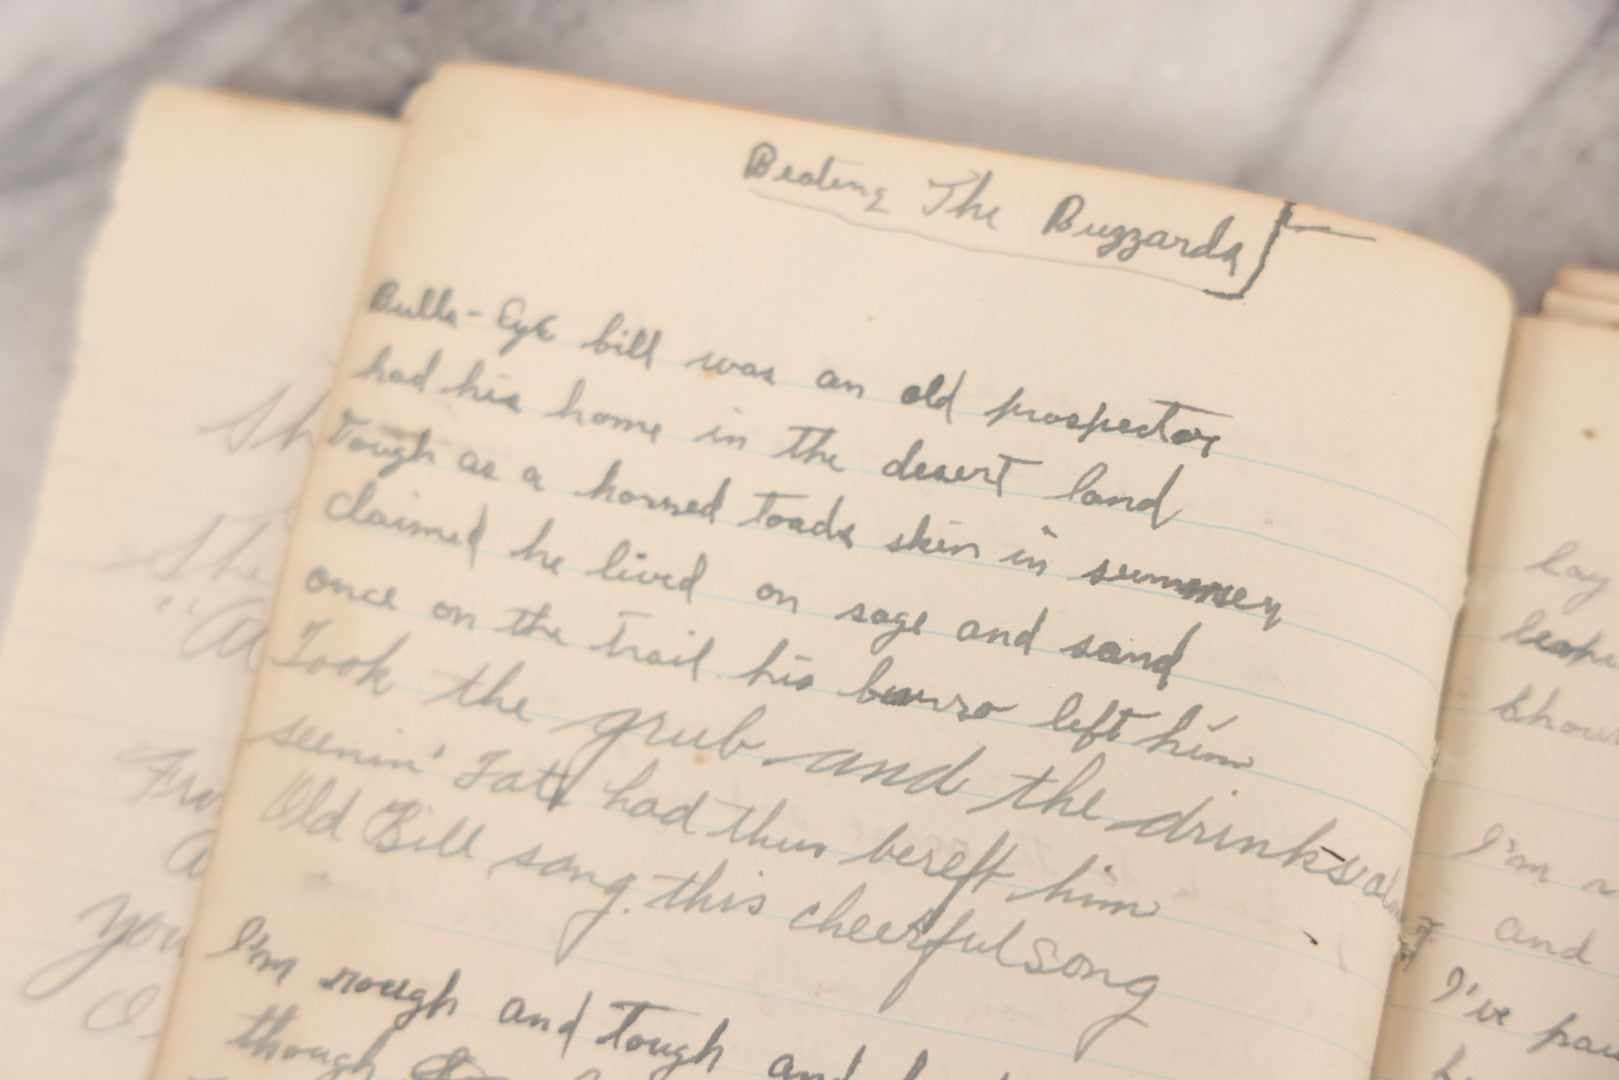 Beating The Buzzards
Bulls-Eye bill was an old prospector
had his home in the desert land
Tough as a horned toads skin in summer
claimed he lived on sage and sand
once on the trail his burro left him
Took the grub and the drinks
seenin' Fate had thus bereft him
Old Bill sang this cheerful song
I'm rough and tough and
though
Sh
She
you
lay
I'm a
and
I've